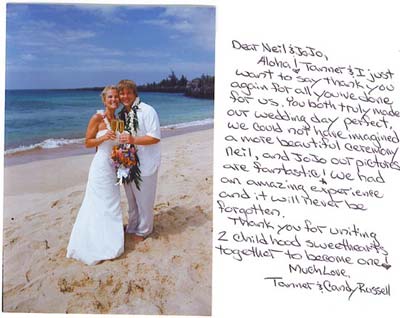 Dear Neil & JoJo,
Aloha! Tanner & I just
want to say thank you
again for all you've done
for us. You both truly made
our wedding day perfect,
we could not have imagined
a more beautiful ceremony
neil, and JoJo our pictures
are fantastic! We had
an amazing experience
and it will never be
forgotten.
Thank you for uniting
2 childhood sweethearts
together to become one!
Much Love,
Tanner & Candy Russell